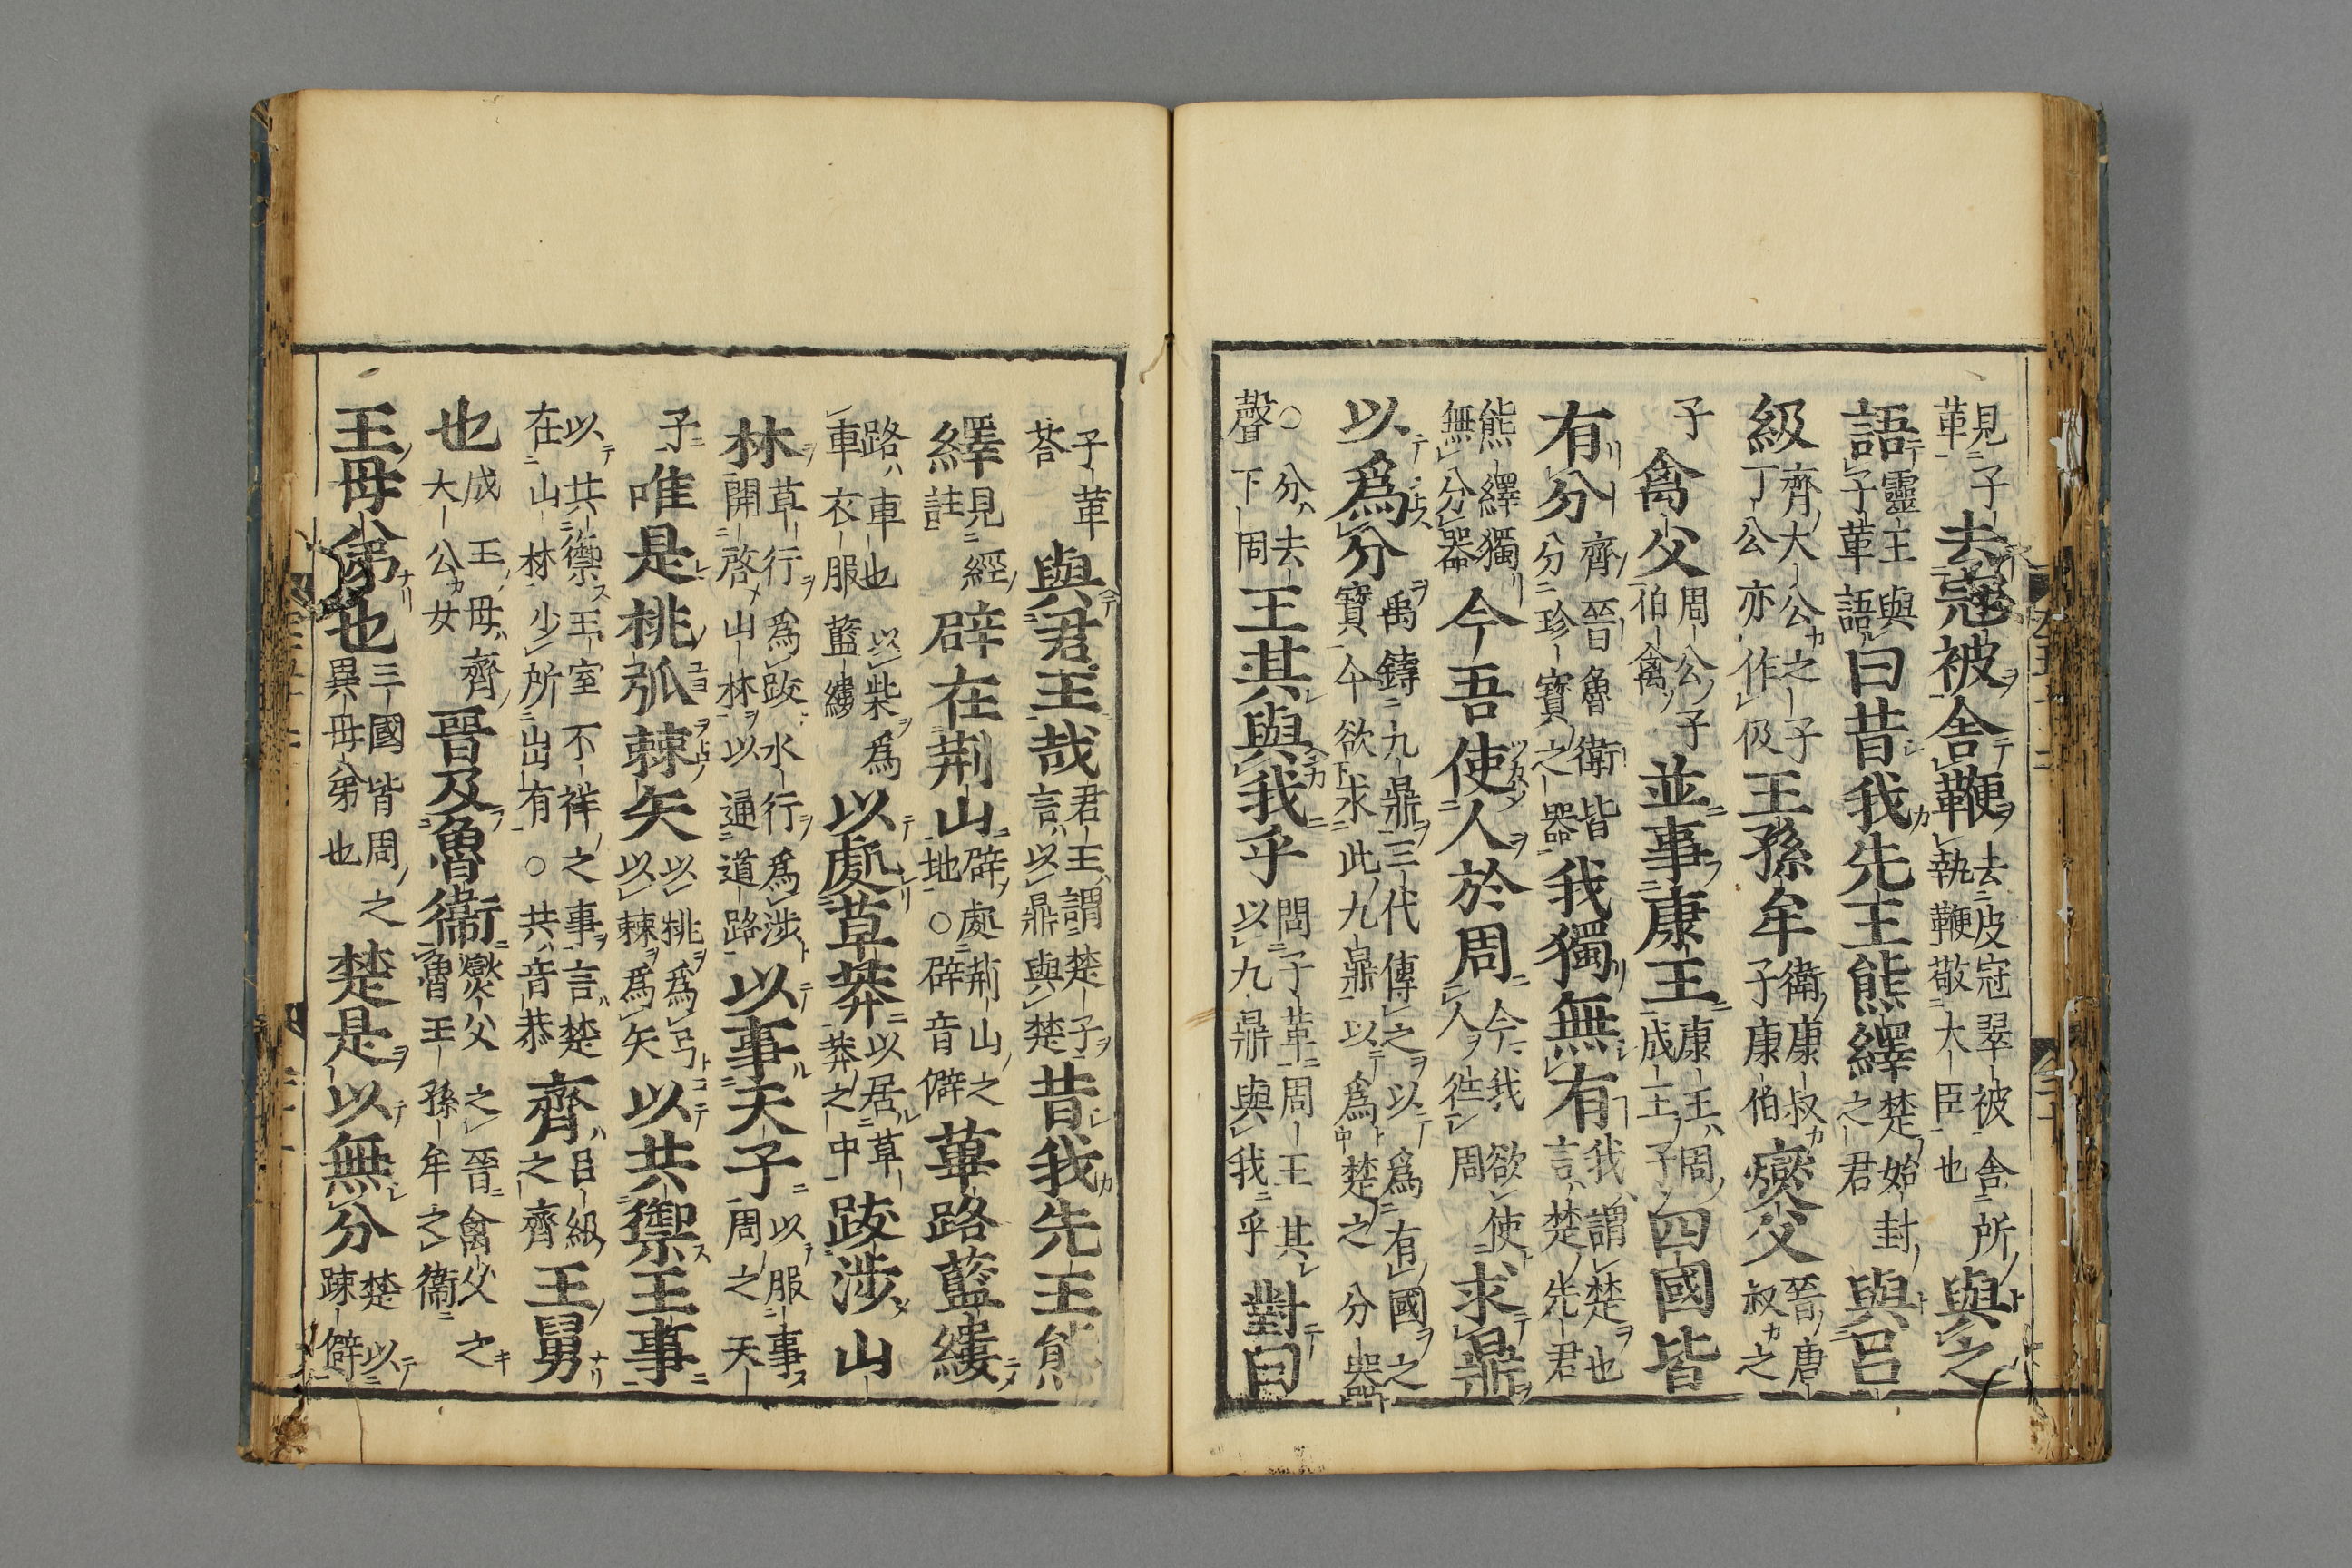 見子革去冠被舍鞭去皮冠翠被舍所執鞭敬大臣也與之
語靈王與子革語曰昔我先王熊繹楚始封之君與呂
級齊大公之子丁公亦作伋王孫牟衛康叔子康伯燮父晉唐叔之
子禽父周公子伯禽並事康王康王周成王子四國皆
有分齊晉魯衛皆分珍寶之器我獨無有我謂楚也言楚先君
熊繹獨無分器今吾使人於周今我欲使人徃周求鼎
以爲分禹鑄九鼎三代傳之以爲有國之寶今欲求此九鼎以爲楚之分器
○分去聲下同王其與我乎問子革周王其以九鼎與我乎對曰
子革荅與君王哉君王謂楚子言以鼎與楚昔我先王熊
繹見經註辟在荆山辟處荆山之地○辟音僻蓽路藍縷
路車也以柴爲車衣服藍縷以處草莽以居草莽之中跋涉山
林草行爲跋水行爲涉開啓山林以通道路以事天子以服事周之天
子唯是桃弧棘矢以桃爲弓以棘爲矢以共禦王事
以共禦王室不祥之事言楚在山林少所出有○共音恭齊呂級之齊王舅
也成王母齊大公女晉及魯衛燮父之晉禽父之魯王孫牟之衛
王母弟也三國皆周之異母弟也楚是以無分楚以踈僻